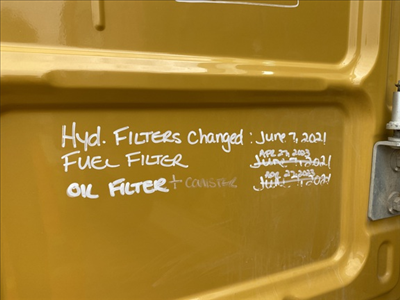 Hyd. FILTERS Changed: June 7, 2021
FUEL FILTER APR 27, 2023 June 7, 2021
OIL FILTER + CANISTER APR 27, 2023 June 7, 2021